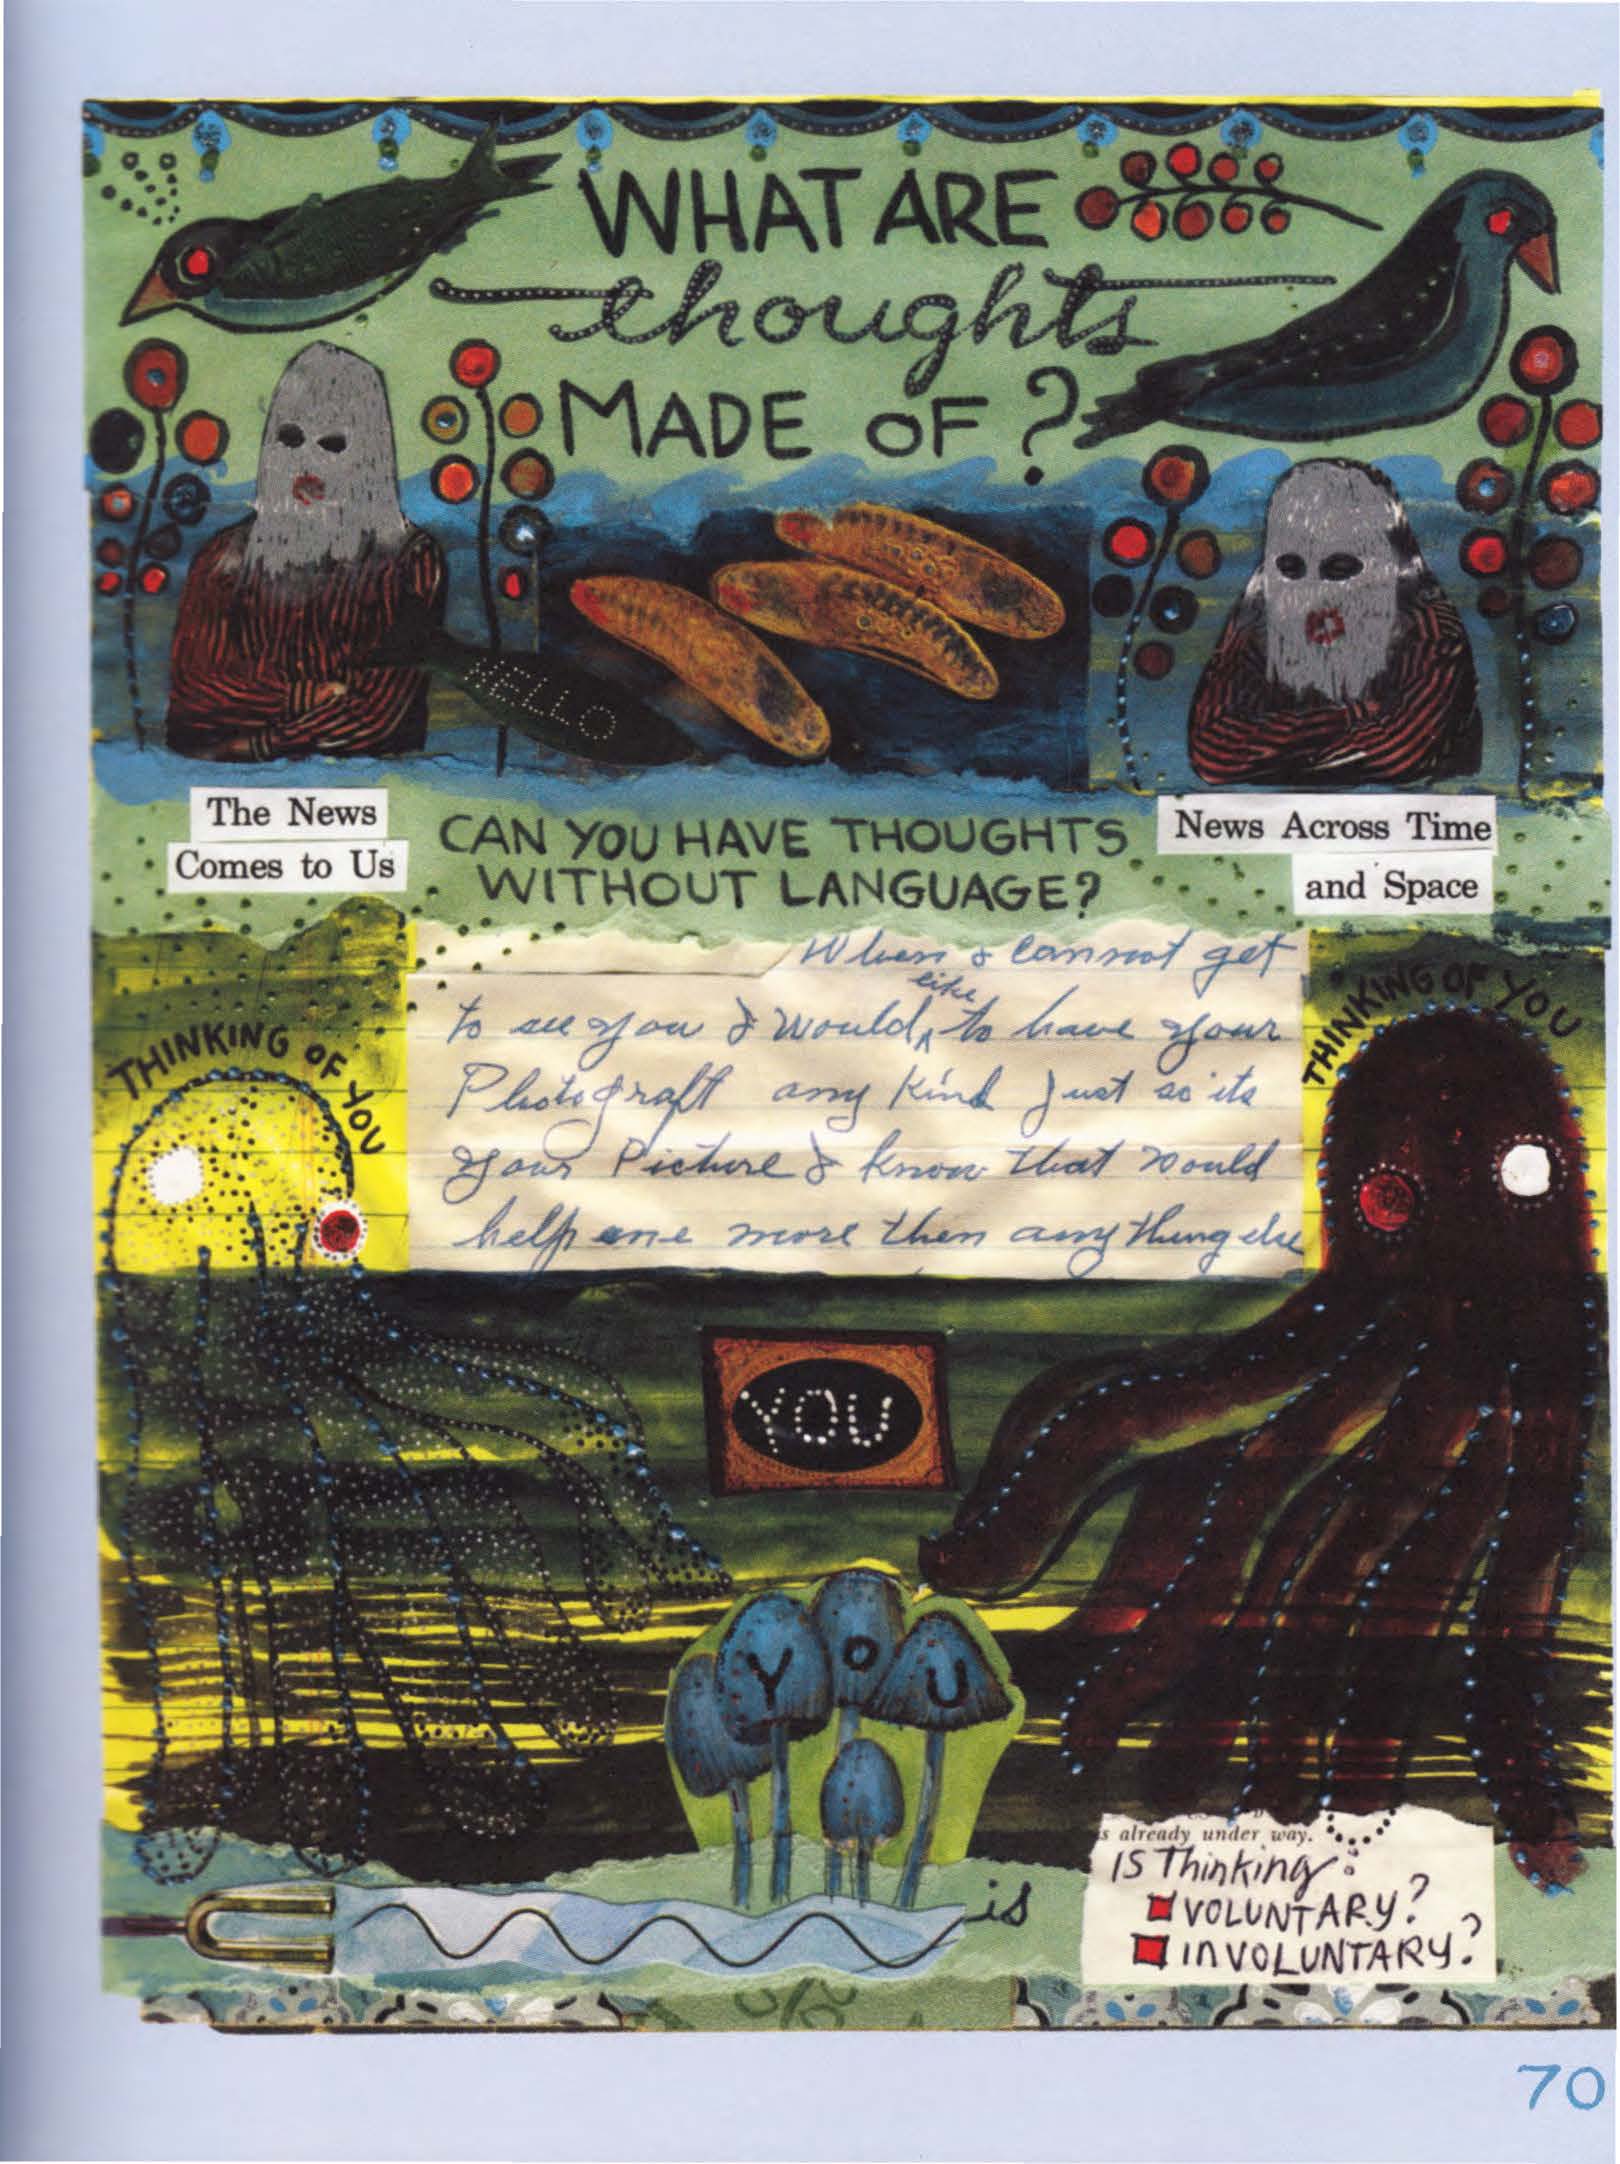 WHAT ARE
thoughts
MADE OF?
HELLO
The News
Comes to Us
CAN YOU HAVE THOUGHTS
WITHOUT LANGUAGE?
News Across Time
and Space
When I cannot get
like
to see you I would ‸ to have your
Photograft any Kind Just so its
your Picture I know that would
help me more then any thing else
THINKING OF YOU
THINKING OF YOU
YOU
YOU
is
s already under way.
IS Thinking:
VOLUNTARY?
INVOLUNTARY?
70